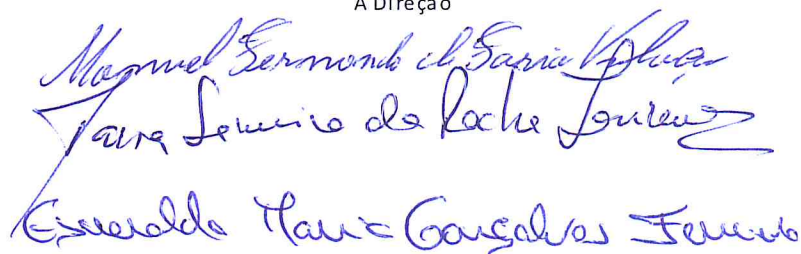 A Direção
Manuel Fernando de Faria
da Rocha Lourenço
Esmeralda Maria Gonçalves Ferreira